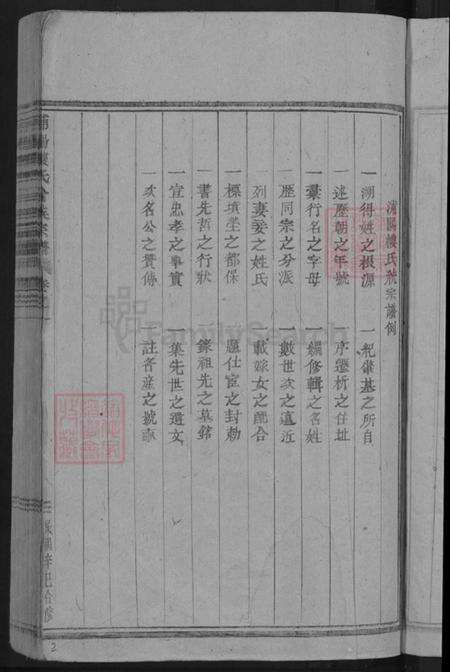 浦陽樓氏統宗譜例
一溯得姓之根源 一紀肇基之所自
一述歷朝之年號 一序遷析之住址
一彙行名之字母 一編修輯之名姓
一歷同宗之分派 一數世次之遠近
一列妻妾之姓氏 一載嫁女之配合
一標墳塋之都保 一題仕宦之封勅
一書先哲之行狀 一錄祖先之墓銘
一宣忠孝之事實 一集先世之遺文
一次名公之贊傳 一註香產之號畝
民國辛巳合修
2